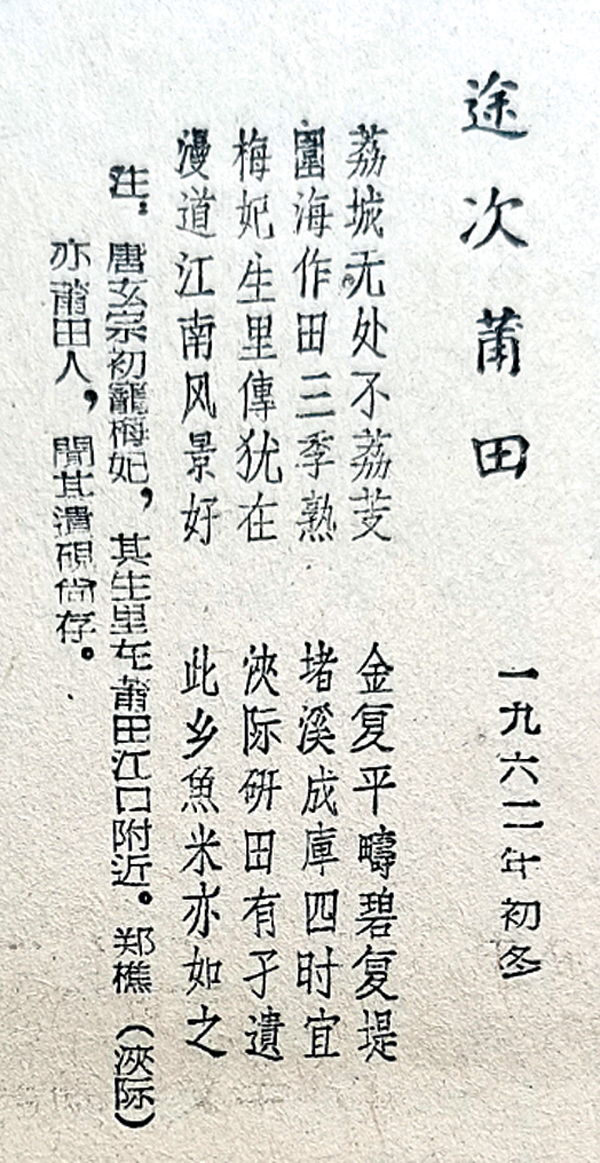 途次莆田
一九六二年初冬
荔城无处不荔芰 金复平疇碧复堤
圍海作田三季熟 堵溪成庫四时宜
梅妃生里傳犹在 浹际研田有孑遺
漫道江南风景好 此乡魚米亦如之
注：唐玄宗初寵梅妃，其生里在莆田江口附近。郑樵（浹际）
亦莆田人，聞其遺硯尚存。